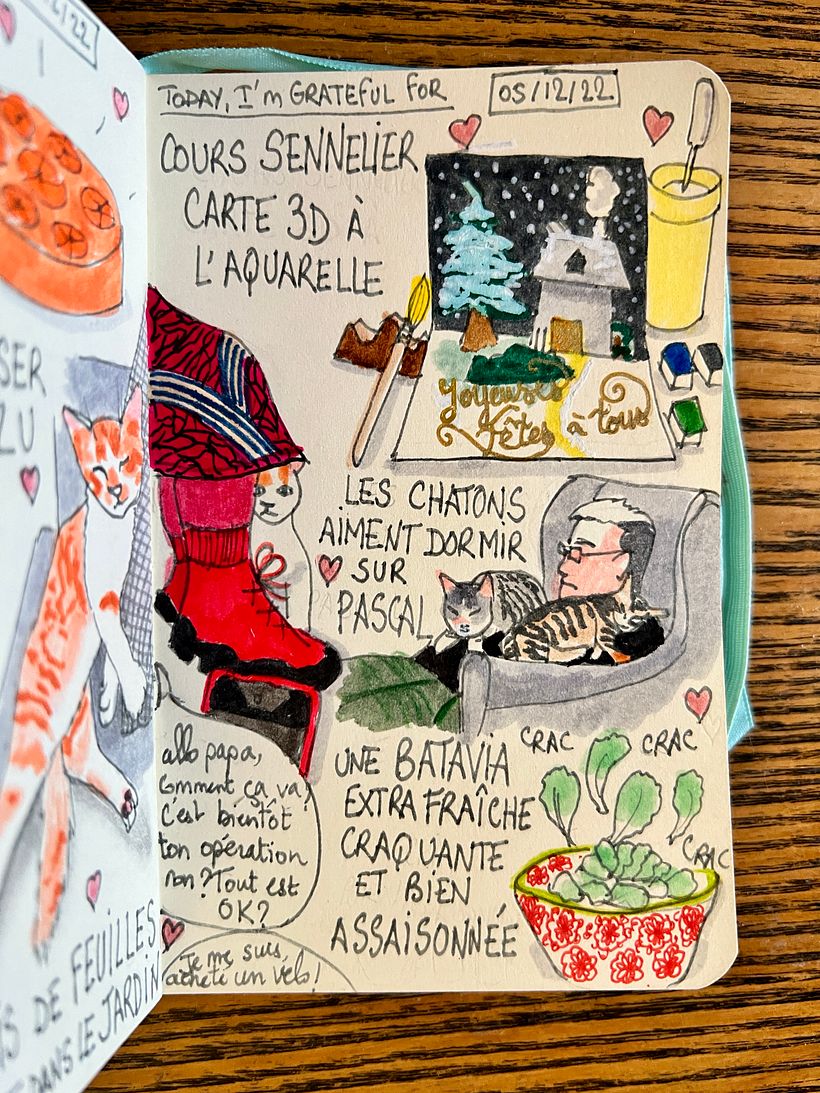 TODAY, I'm GRATEFUL FOR
05/12/22
COURS SENNELIER
CARTE 3D À
L'AQUARELLE
Joyeuses
fêtes à tous
LES CHATONS
AIMENT DORMIR
SUR
PASCAL
allo papa,
comment ça va,
c'est bientôt
ton opération
non? Tout est
OK?
Je me suis
acheté un vélo!
UNE BATAVIA
EXTRA FRAÎCHE
CRAQUANTE
ET BIEN
ASSAISONNÉE
CRAC
CRAC
CRAC
/22
SER
DE FEUILLES
DANS LE JARDIN